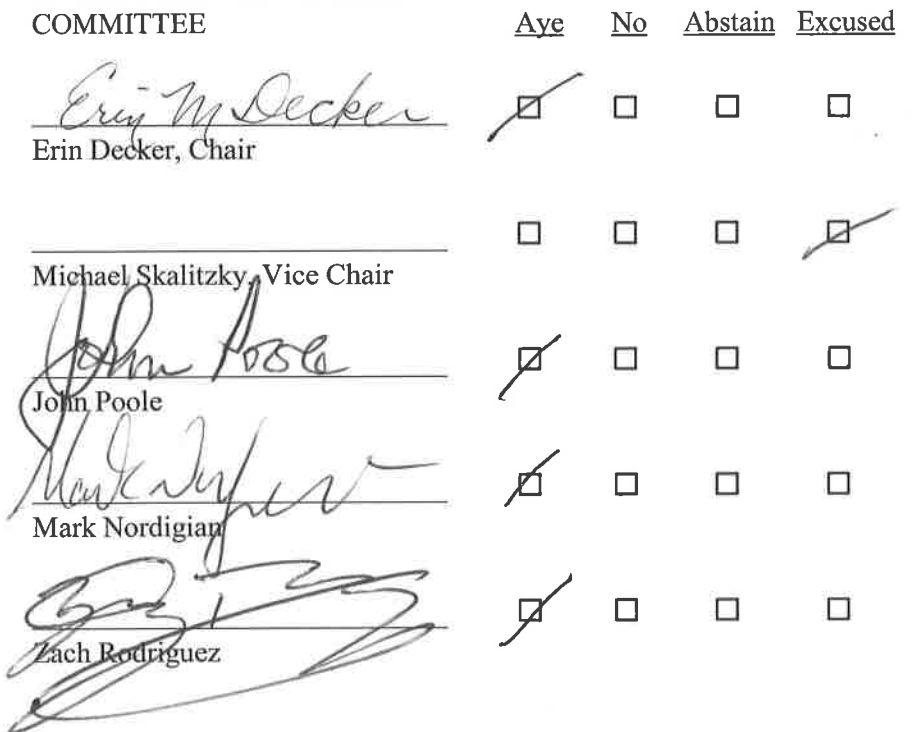 COMMITTEE Aye No Abstain Excused
Erin M Decker
Erin Decker, Chair
Michael Skalitzky, Vice Chair
John Poole
John Poole
Mark Nordigian
Zach Rodriguez